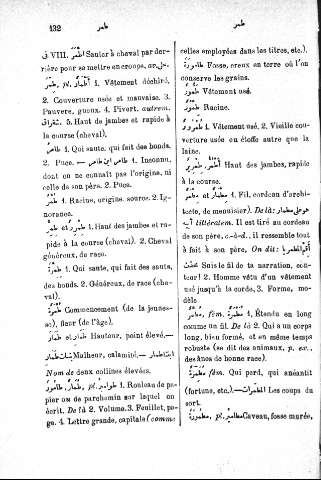 132
طمر
طمر
ق VIII. اطّمر Sauter à cheval par der-
rière pour se mettre en croupe, av. على.
طِمْر, pl. أطمار 1. Vêtement déchiré,
2. Couverture usée et mauvaise. 3.
Pauvre, gueux. 4. Pivert. autrem.
شقراق. 5. Haut de jambes et rapide à
la course (cheval).
طامر 1. Qui saute, qui fait des bonds.
2. Puce. — طامر ابن طامر 1. Inconnu,
dont on ne connaît pas l'origine, ni
celle de son père. 2. Puce.
1. Racine, origine, source. 2. Ig-
norance.
طمر et طمرر 1. Haut des jambes et ra-
pide à la course (cheval). 2. Cheval
généreux, de race.
1. Qui saute, qui fait des sauts,
des bonds. 2. Généreux, de race (che-
val).
Commencement (de la jeunes-
se), fleur (de l'âge).
طمار et طمار Hauteur, point élevé.—
بنات طمار Malheur, calamité.— ابنتا طمار
Nom de deux collines élevées.
طومار, pl. طوامير 1. Rouleau de pa-
pier ou de parchemin sur lequel on
écrit. De là 2. Volume. 3. Feuillet, pa-
ge. 4. Lettre grande, capitale (comme
celles employées dans les titres, etc.).
Fosse, creux en terre où l'on
conserve les grains.
Vêtement usé.
Racine.
1. Vêtement usé. 2. Vieille cou-
verture usée en étoffe autre que la
laine.
Haut des jambes, rapide
à la course.
مطمار et مطمر 1. Fil, cordeau d'archi-
tecte, de menuisier). De là:
littéralem. Il est tiré au cordeau
de son père, c.-à-d., il ressemble tout
à fait à son père, On dit: أقم المطمر
Suis le fil de ta narration, con-
teur! 2. Homme vêtu d'un vêtement
usé jusqu'à la corde. 3. Forme, mo-
dèle.
مطمر, fém. مطمرة 1. Étendu en long
comme un fil. De là 2. Qui a un corps
long, bien formé, et en même temps
robuste (se dit des animaux, p. ex.,
des ânes de bonne race).
fém. Qui perd, qui anéantit
(fortune, etc.).— المطمرات Les coups du
sort.
مطمورة, pl. مطامير Caveau, fosse murée,